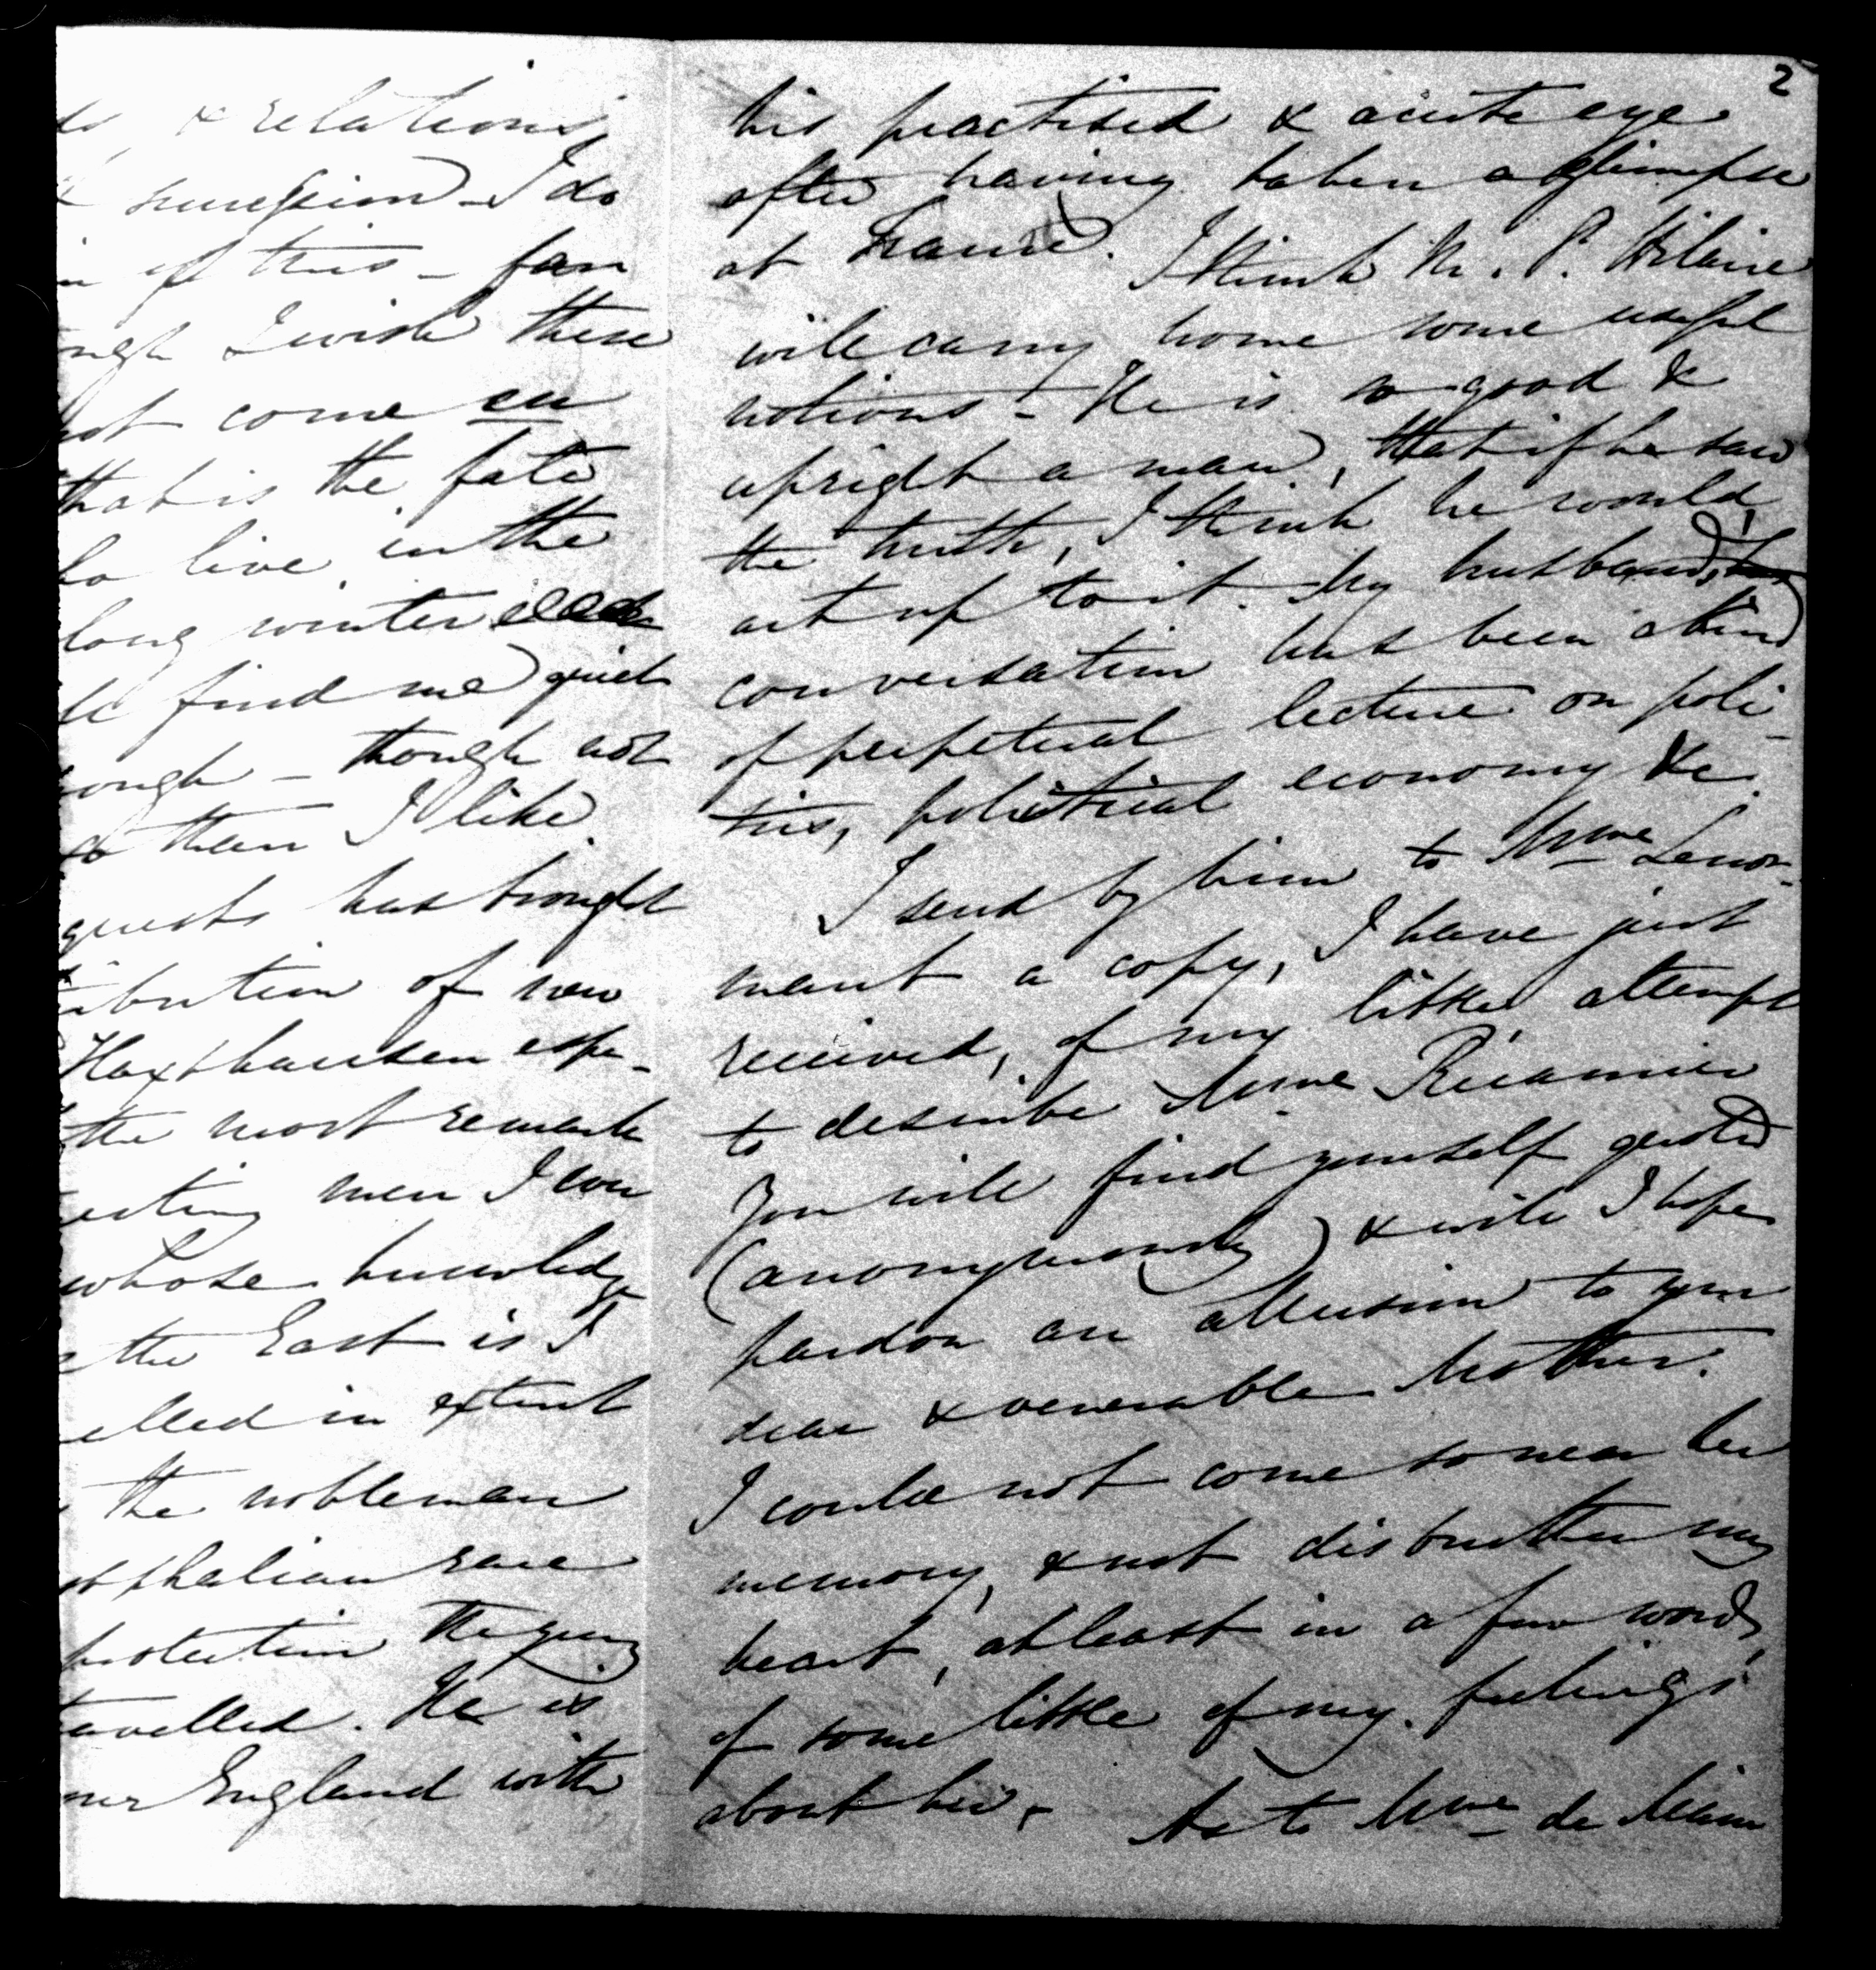 & relations,
succession - I do
of this - for
I wish these
come en
that is the fate
live in the
long winter
find me quiet
- though not
then I like
guests has brought
of new
Haxthausen espe-
the most remark
men I ever
whose knowledge
the East is I
elled in extent
the nobleman
race
protection the young
travelled. He is
England with
2
his practised & acute eye
after having taken a glimpse
at France. I think M. S. Hilaire
will carry home some useful
notions - He is so good &
upright a man, that if he saw
the truth, I think he would
act up to it. My husband's
conversation has been a kind
of perpetual lecture on poli-
tics, political economy &c.
I send by him to Mme Lenor-
mant a copy, I have just
received, of my little attempt
to describe Mme Récamier
You will find yourself quoted
(anonymously) & will I hope
pardon an allusion to your
dear & venerable Mother.
I could not come so near her
memory, & not disburthen my
heart, at least in a few words,
of some little of my feelings
about her. As to Mme de